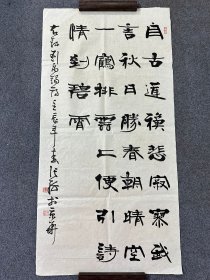 自古逢秋悲寂寥我
言秋日勝春朝晴空
一鶴排雲上便引詩
情到碧霄
右録劉禹錫詩